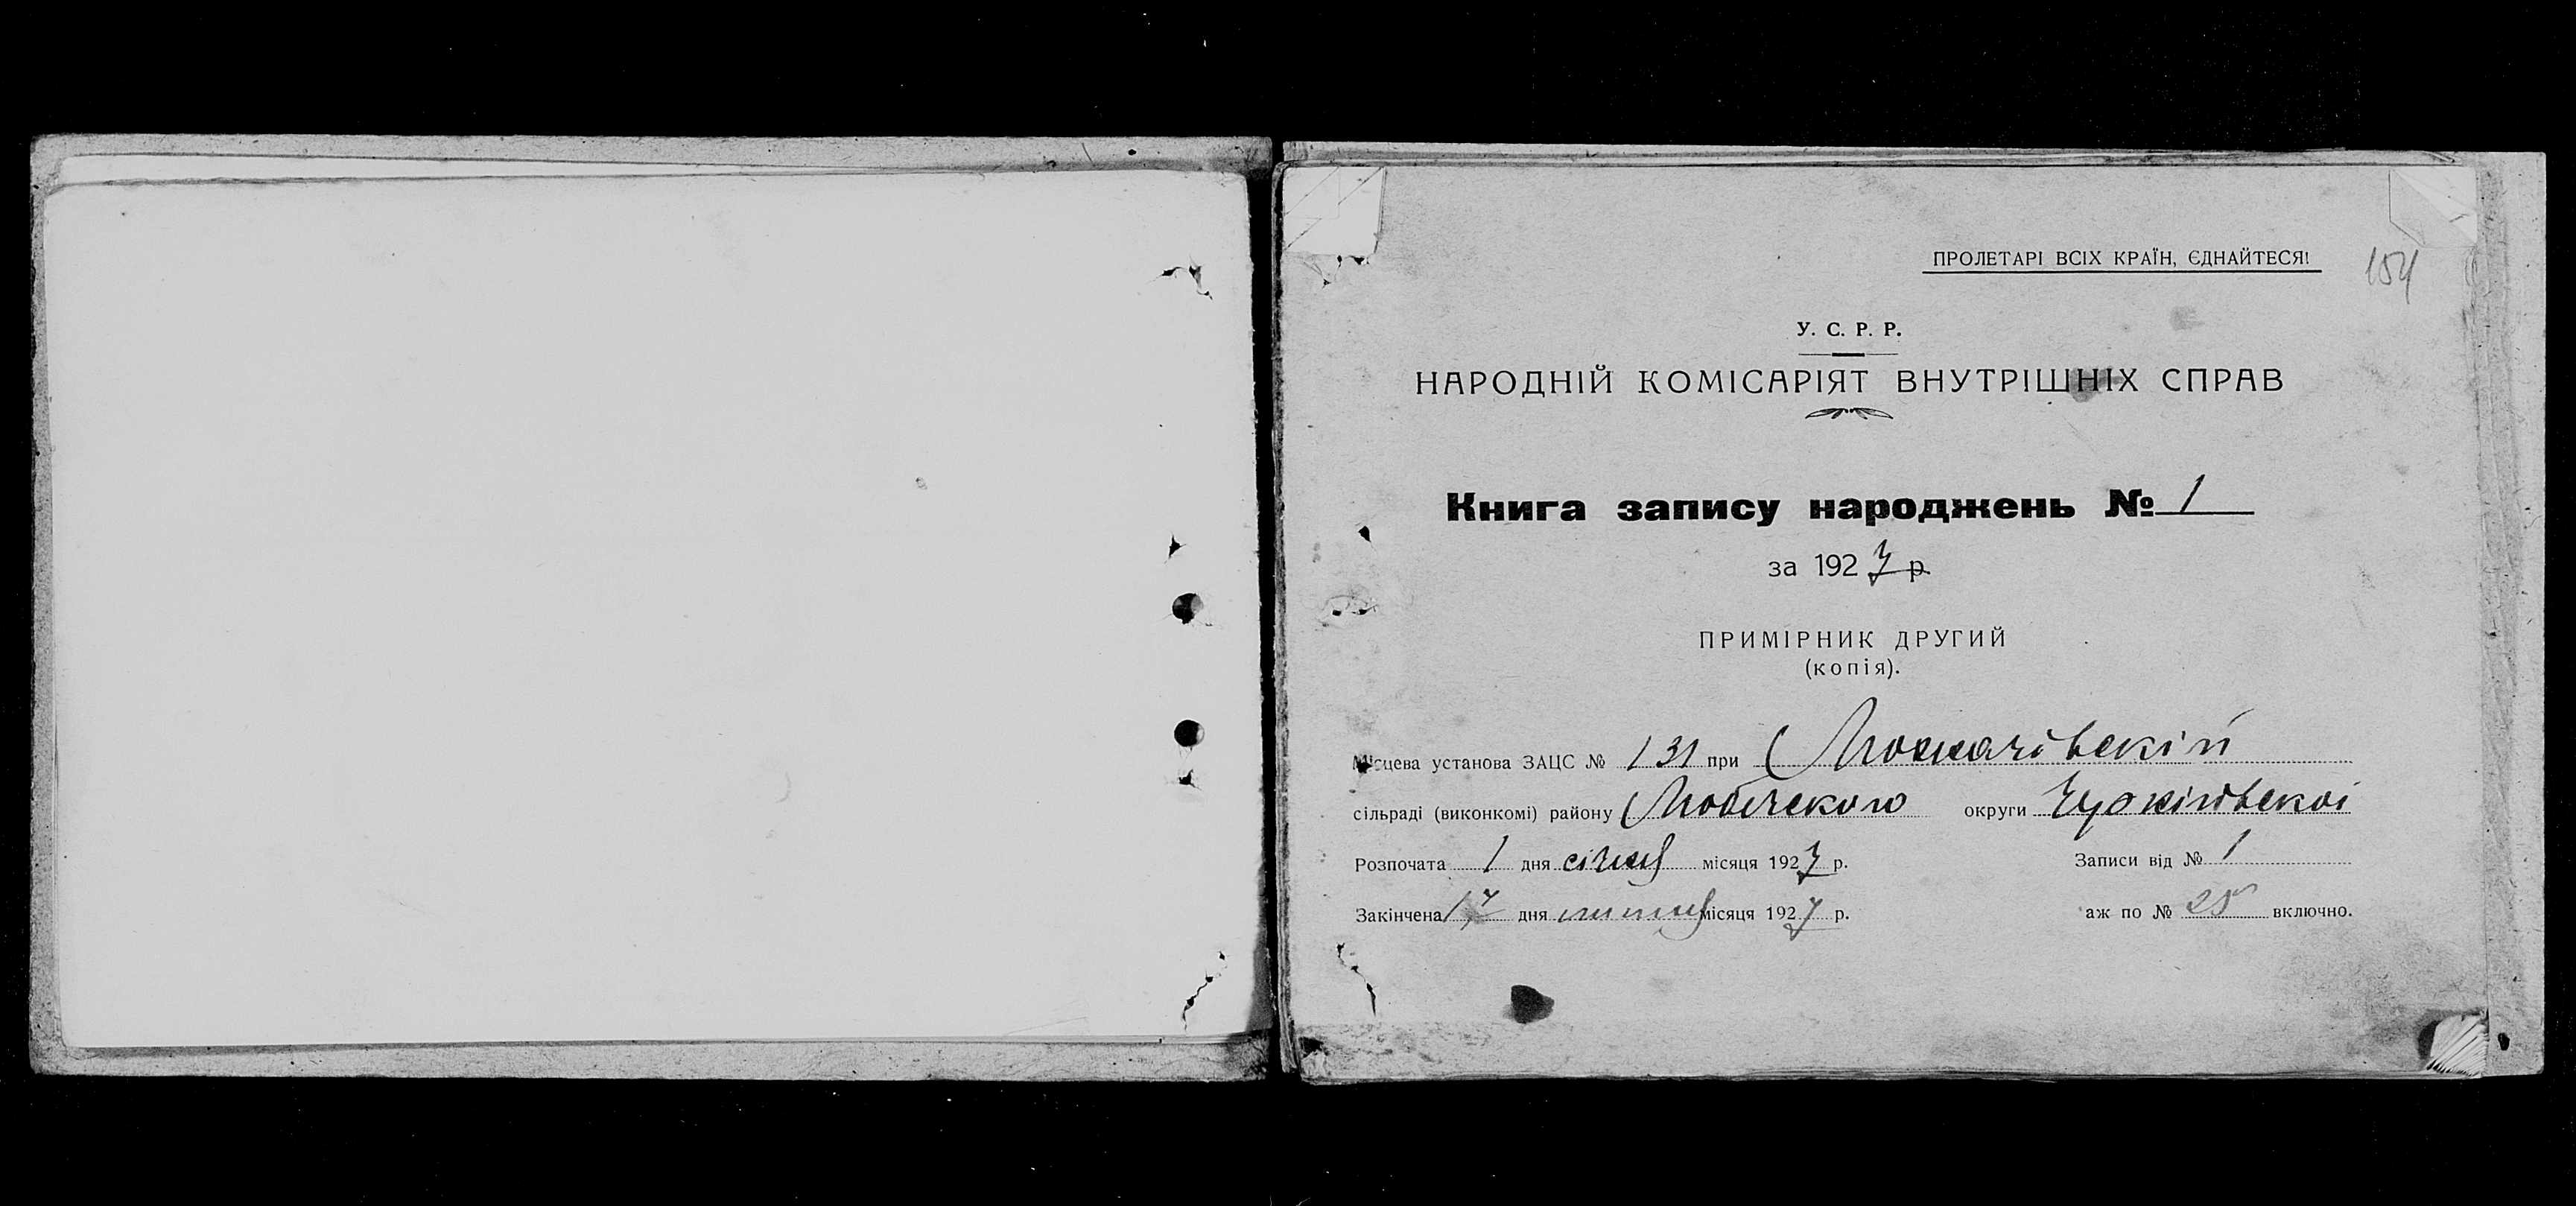 ПРОЛЕТАРІ ВСІХ КРАЇН, ЄДНАЙТЕСЯ!
154
У. С. Р. Р.
НАРОДНІЙ КОМІСАРІЯТ ВНУТРІШНІХ СПРАВ
Книга запису народжень № 1
за 1927 р.
ПРИМІРНИК ДРУГИЙ
(копія).
Місцева установа ЗАЦС № 131 при
сільраді (виконкомі) району Любечского округи
Розпочата 1 дня січня місяця 1927 р. Записи від № 1
Закінчена 17 дня місяця 1927 р. аж по № 25 включно.